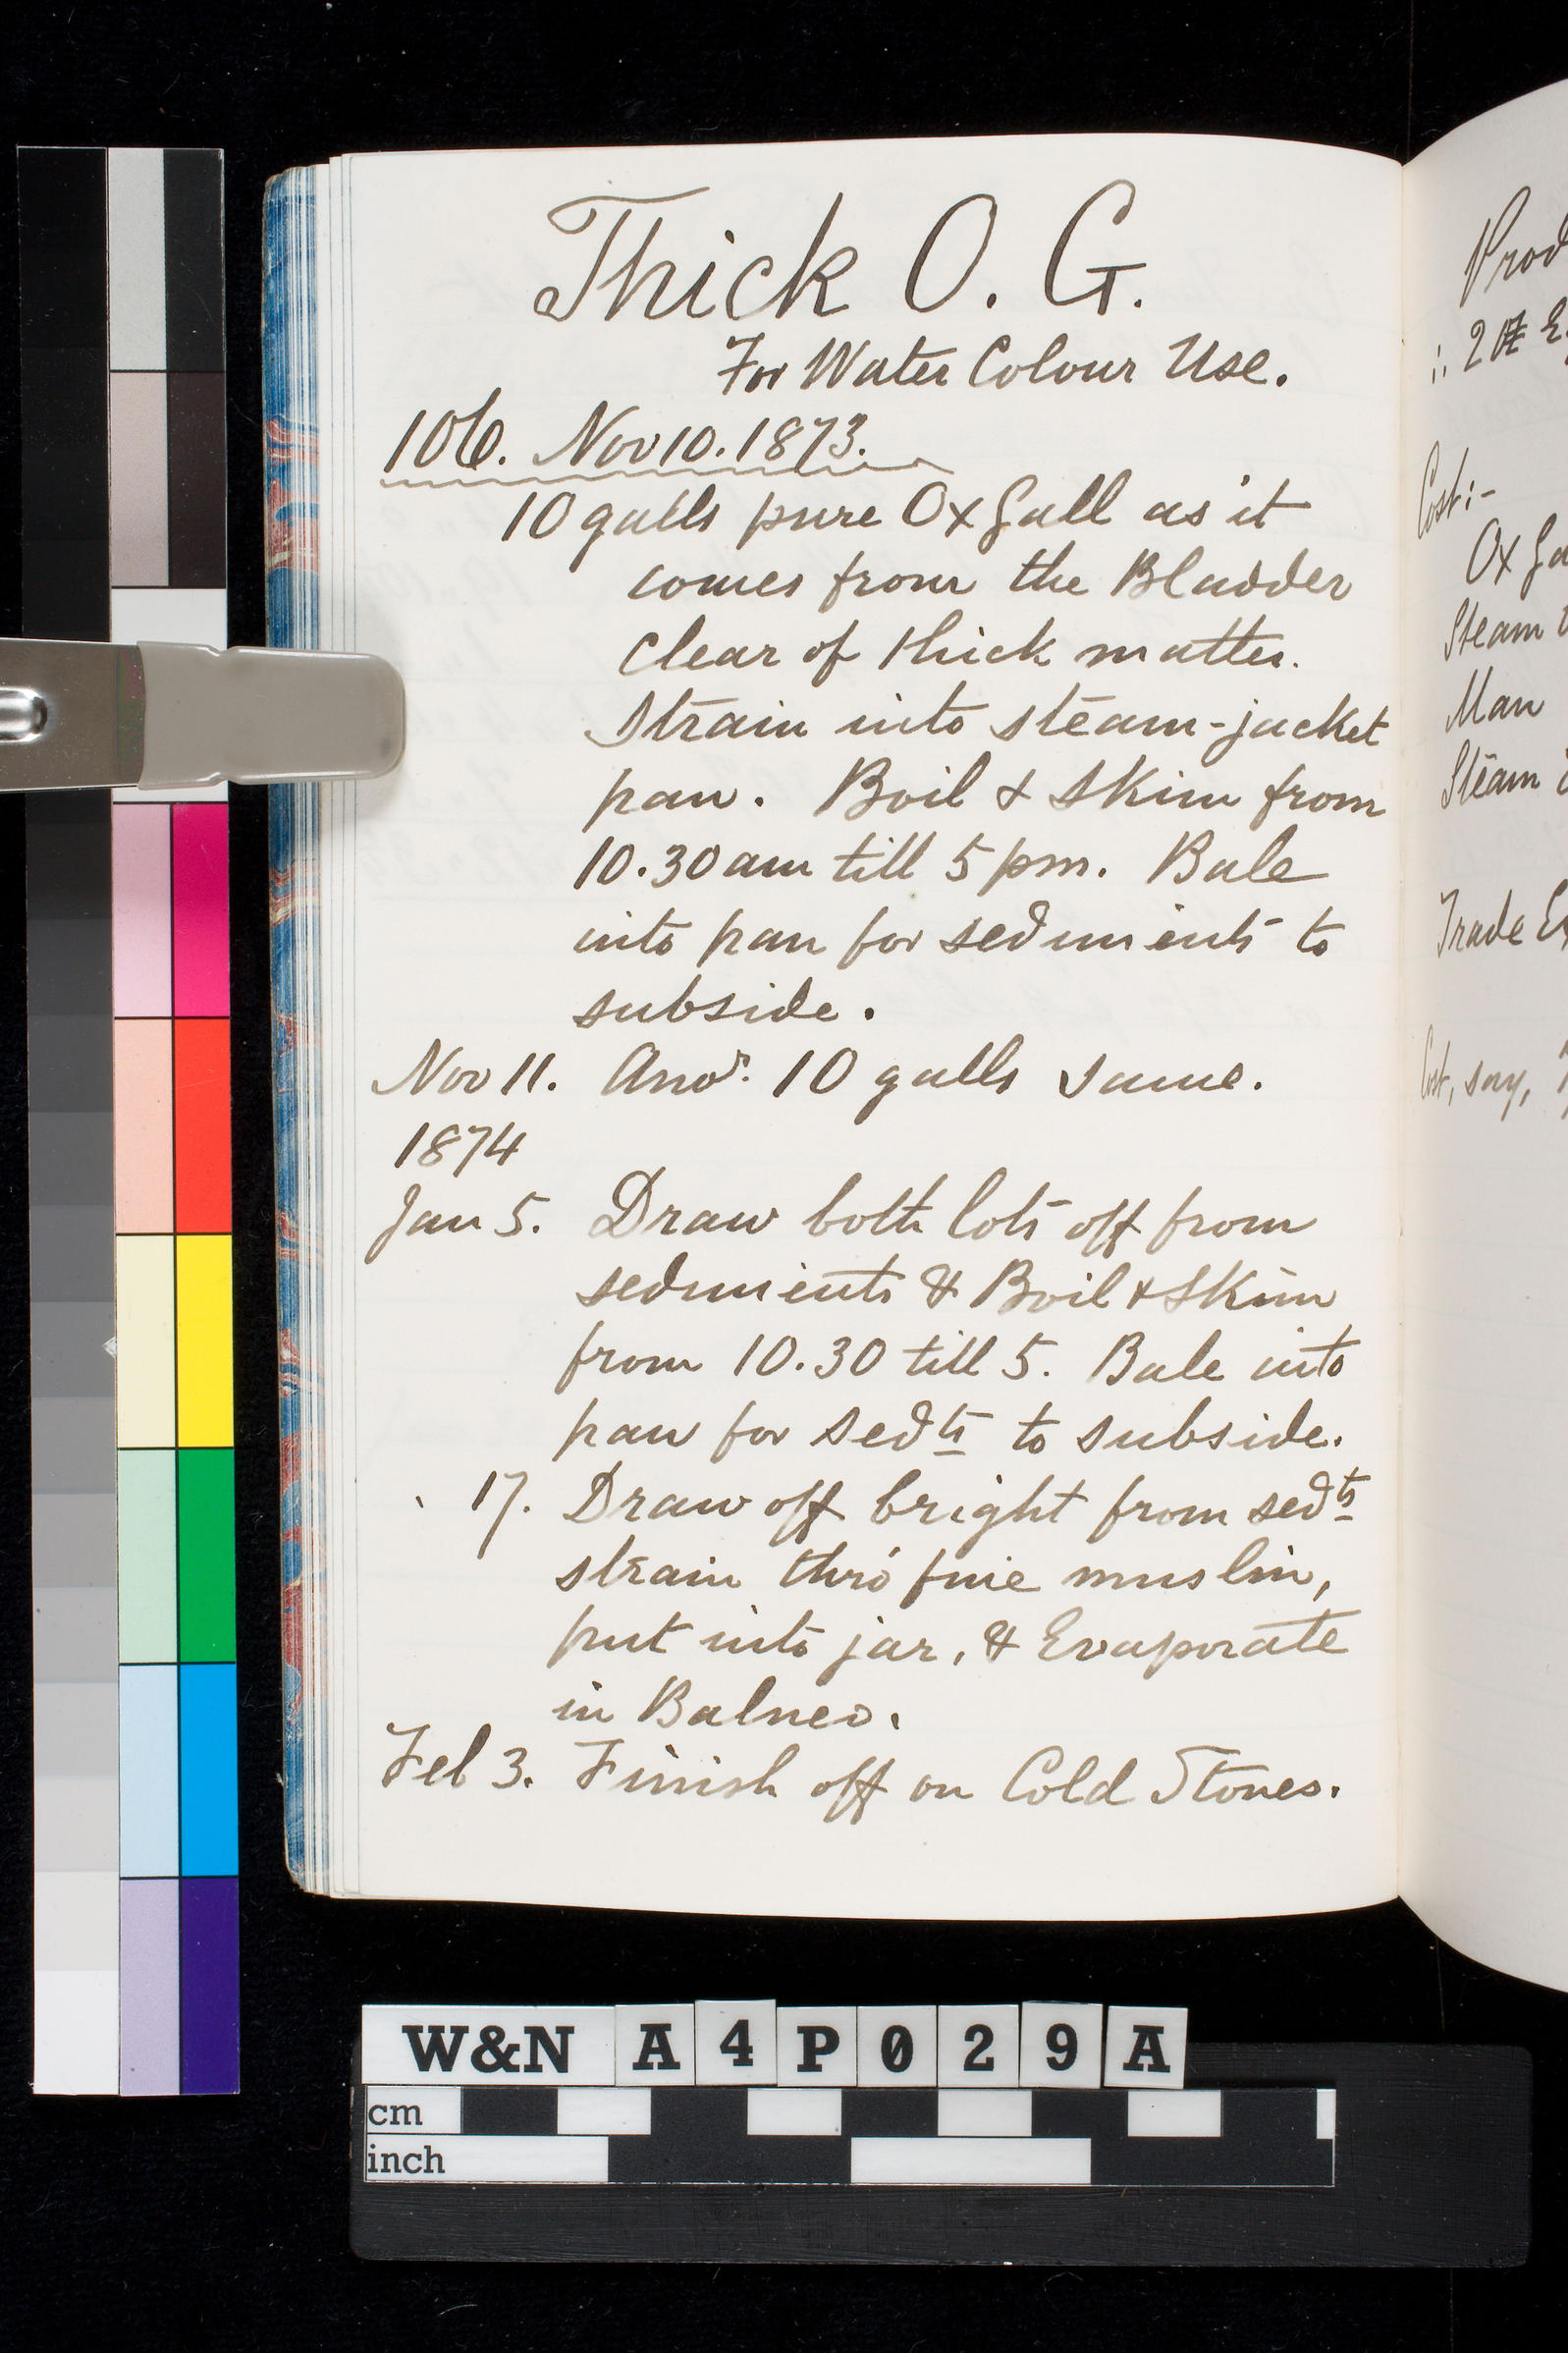 Thick O. G.
For Water Colour Use.
106. Nov 10. 1873.
10 galls pure Ox Gall as it
comes from the Bladder
clear of thick matter.
Strain into steam-jacket
pan. Boil & Skim from
10.30 am till 5 pm. Bale
into pan for sediments to
subside.
Nov 11. Anoʳ. 10 galls same.
1874
Jan 5. Draw both lots off from
sediments & Boil & Skim
from 10.30 till 5. Bale into
pan for sedᵗˢ to subside.
17. Draw off bright from sedᵗˢ
strain thro' fine muslin,
put into jar, & Evaporate
in Balneo.
Feb 3. Finish off on Cold Stones.
Cost:-
Steam
Man
Steam
Trade
Cost, say,
W&N A4P029A
cm
inch